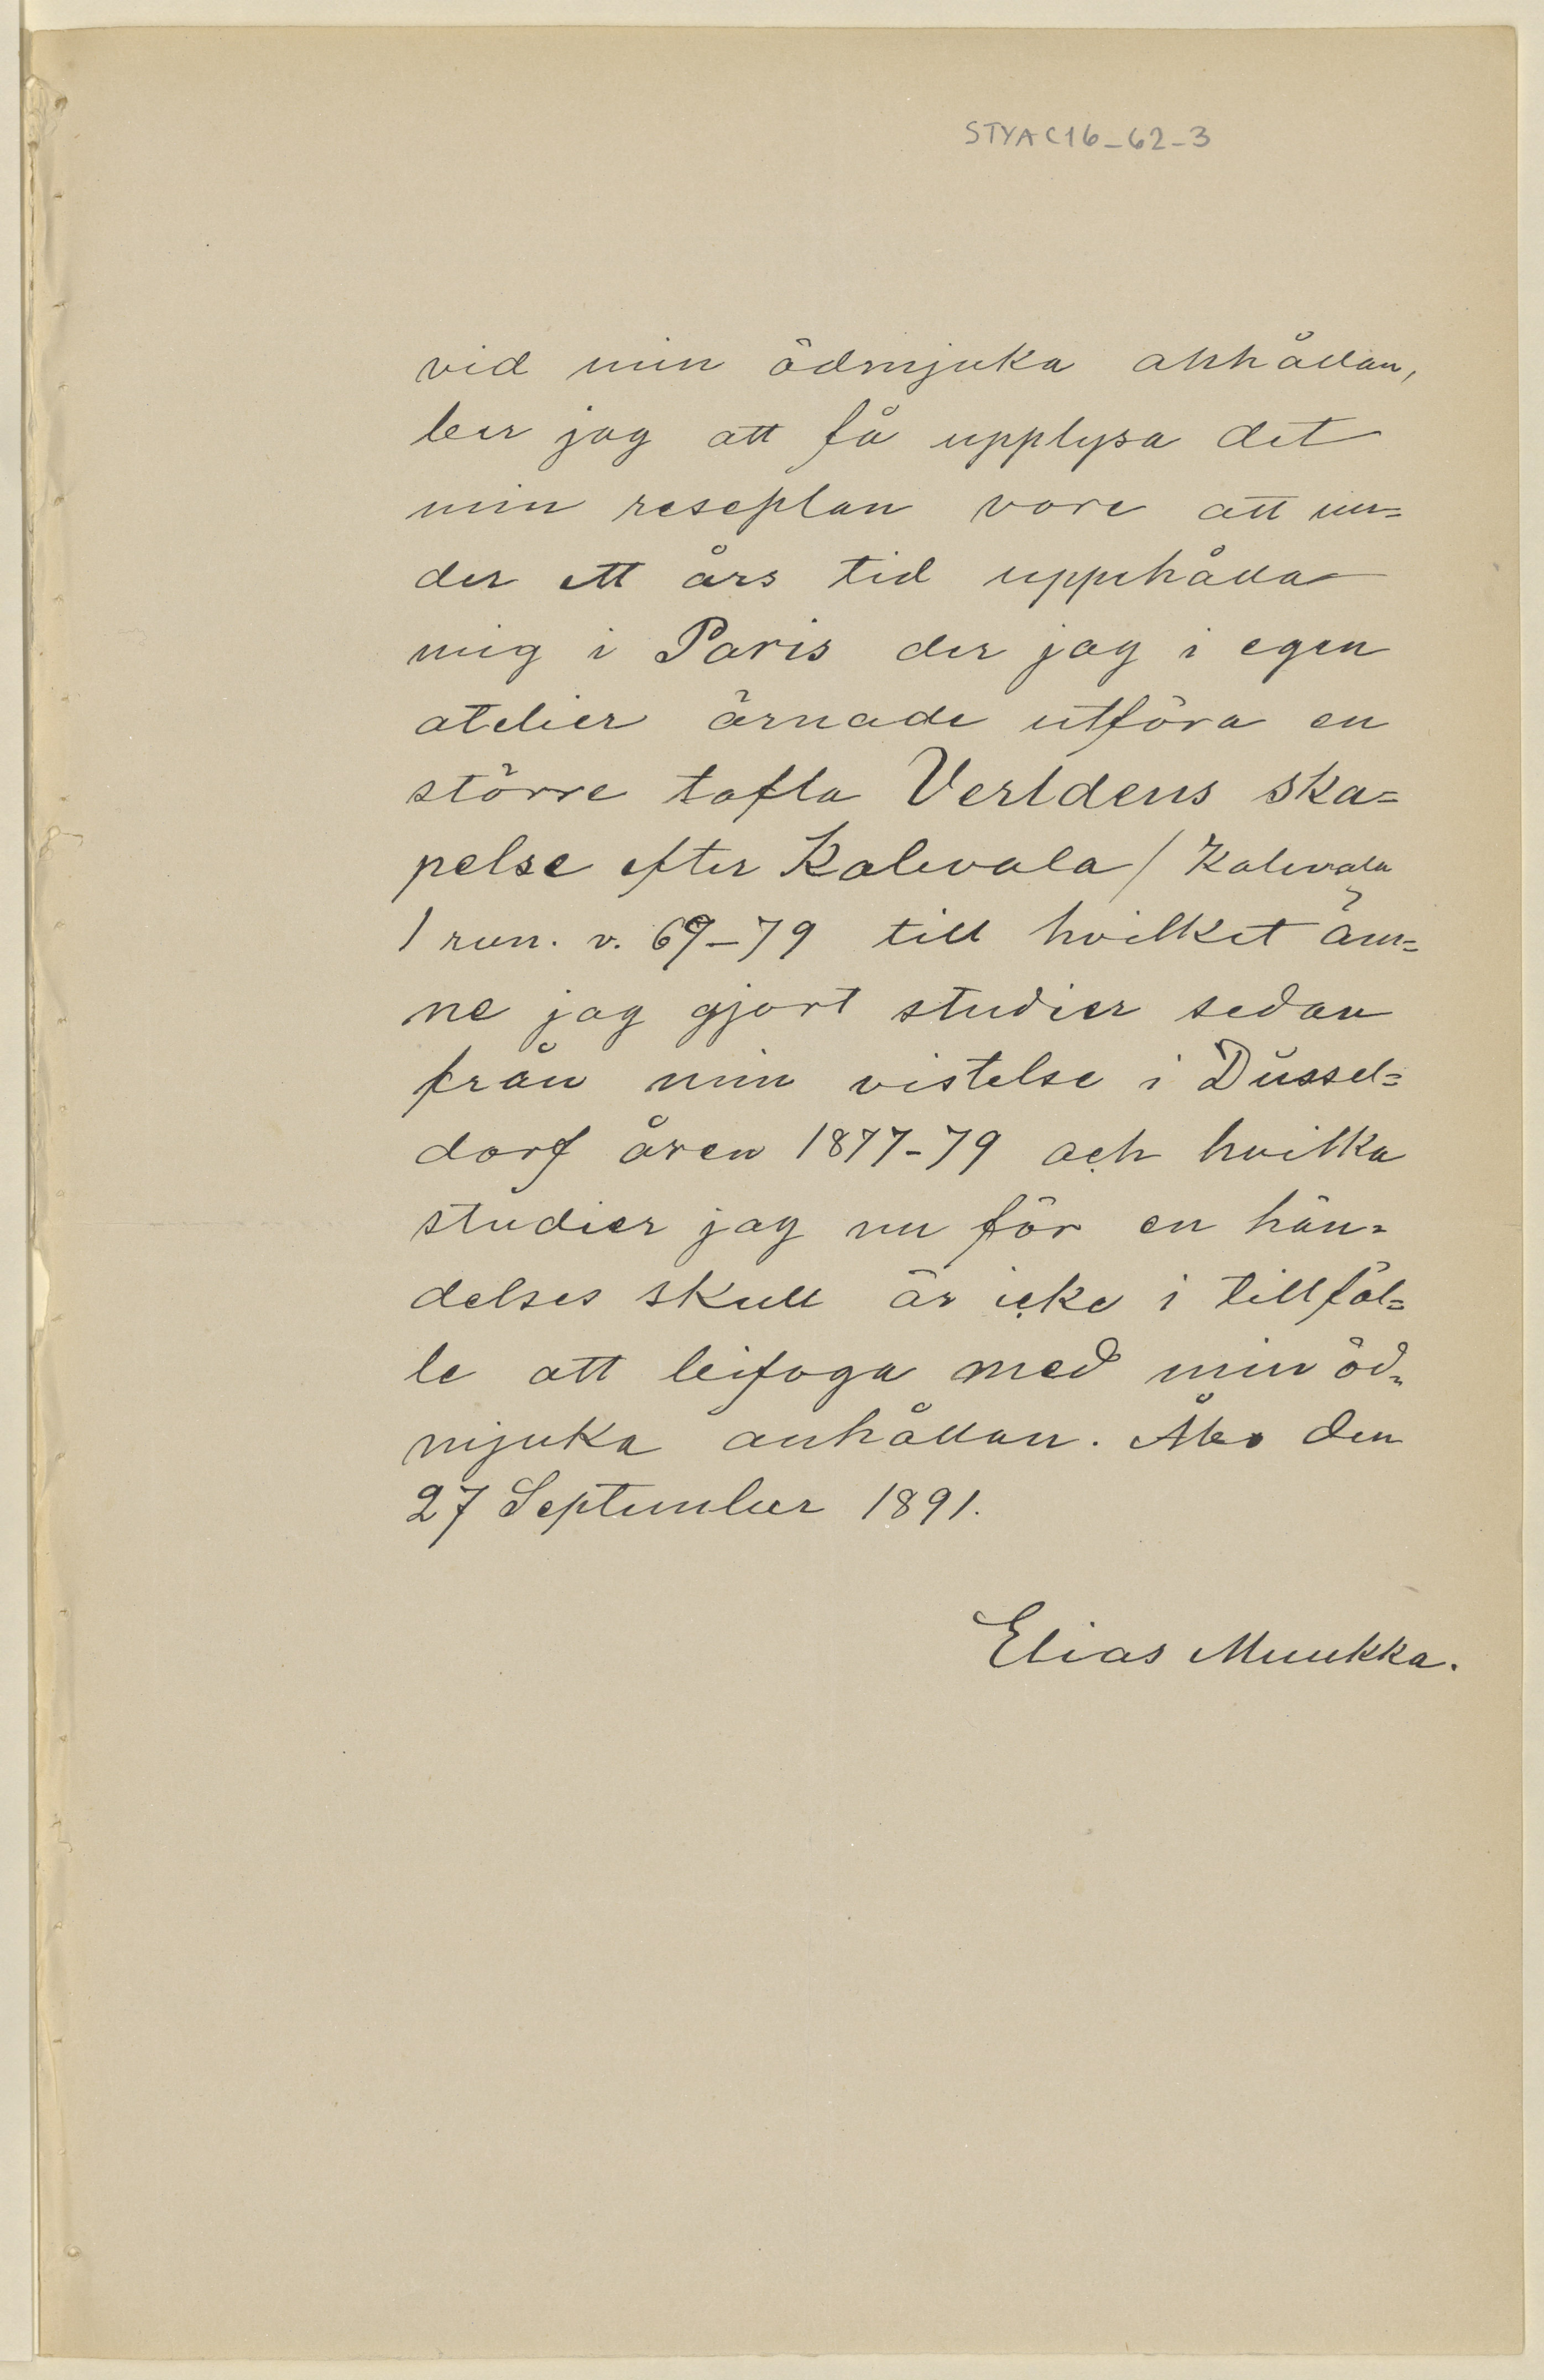 STYA C16_62_3
vid min ödmjuka anhållan,
ber jag att få upplysa det
min reseplan vore att un=
der ett års tid uppehålla
mig i Paris der jag i egen
atelier ärnade utföra en
större tafla Verldens ska=
pelse efter Kalevala / Kalevala
1 run. v. 69-79 till hvilket äm=
ne jag gjort studier sedan
från min vistelse i Düssel=
dorf åren 1877-79 och hvilka
studier jag nu för en hän=
delses skull är icke i tillfäl=
le att bifoga med min öd=
mjuka anhållan. Åbo den
27 September 1891.
Elias Muukka.